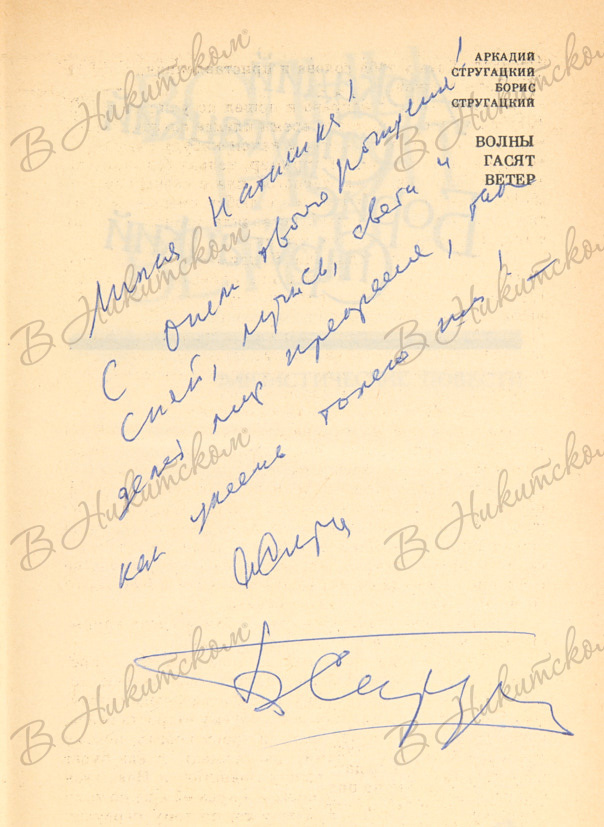 АРКАДИЙ
СТРУГАЦКИЙ
БОРИС
СТРУГАЦКИЙ
ВОЛНЫ
ГАСЯТ
ВЕТЕР
Милая Наташка!
С днем твоего рождения!
Сияй, лучись, свети и
делай мир прекраснее, так
как умеешь только ты! –
В Никитском
В Никитском
В Никитском
В Никитском
В Никитском
В Никитском
В Никитском
В Никитском